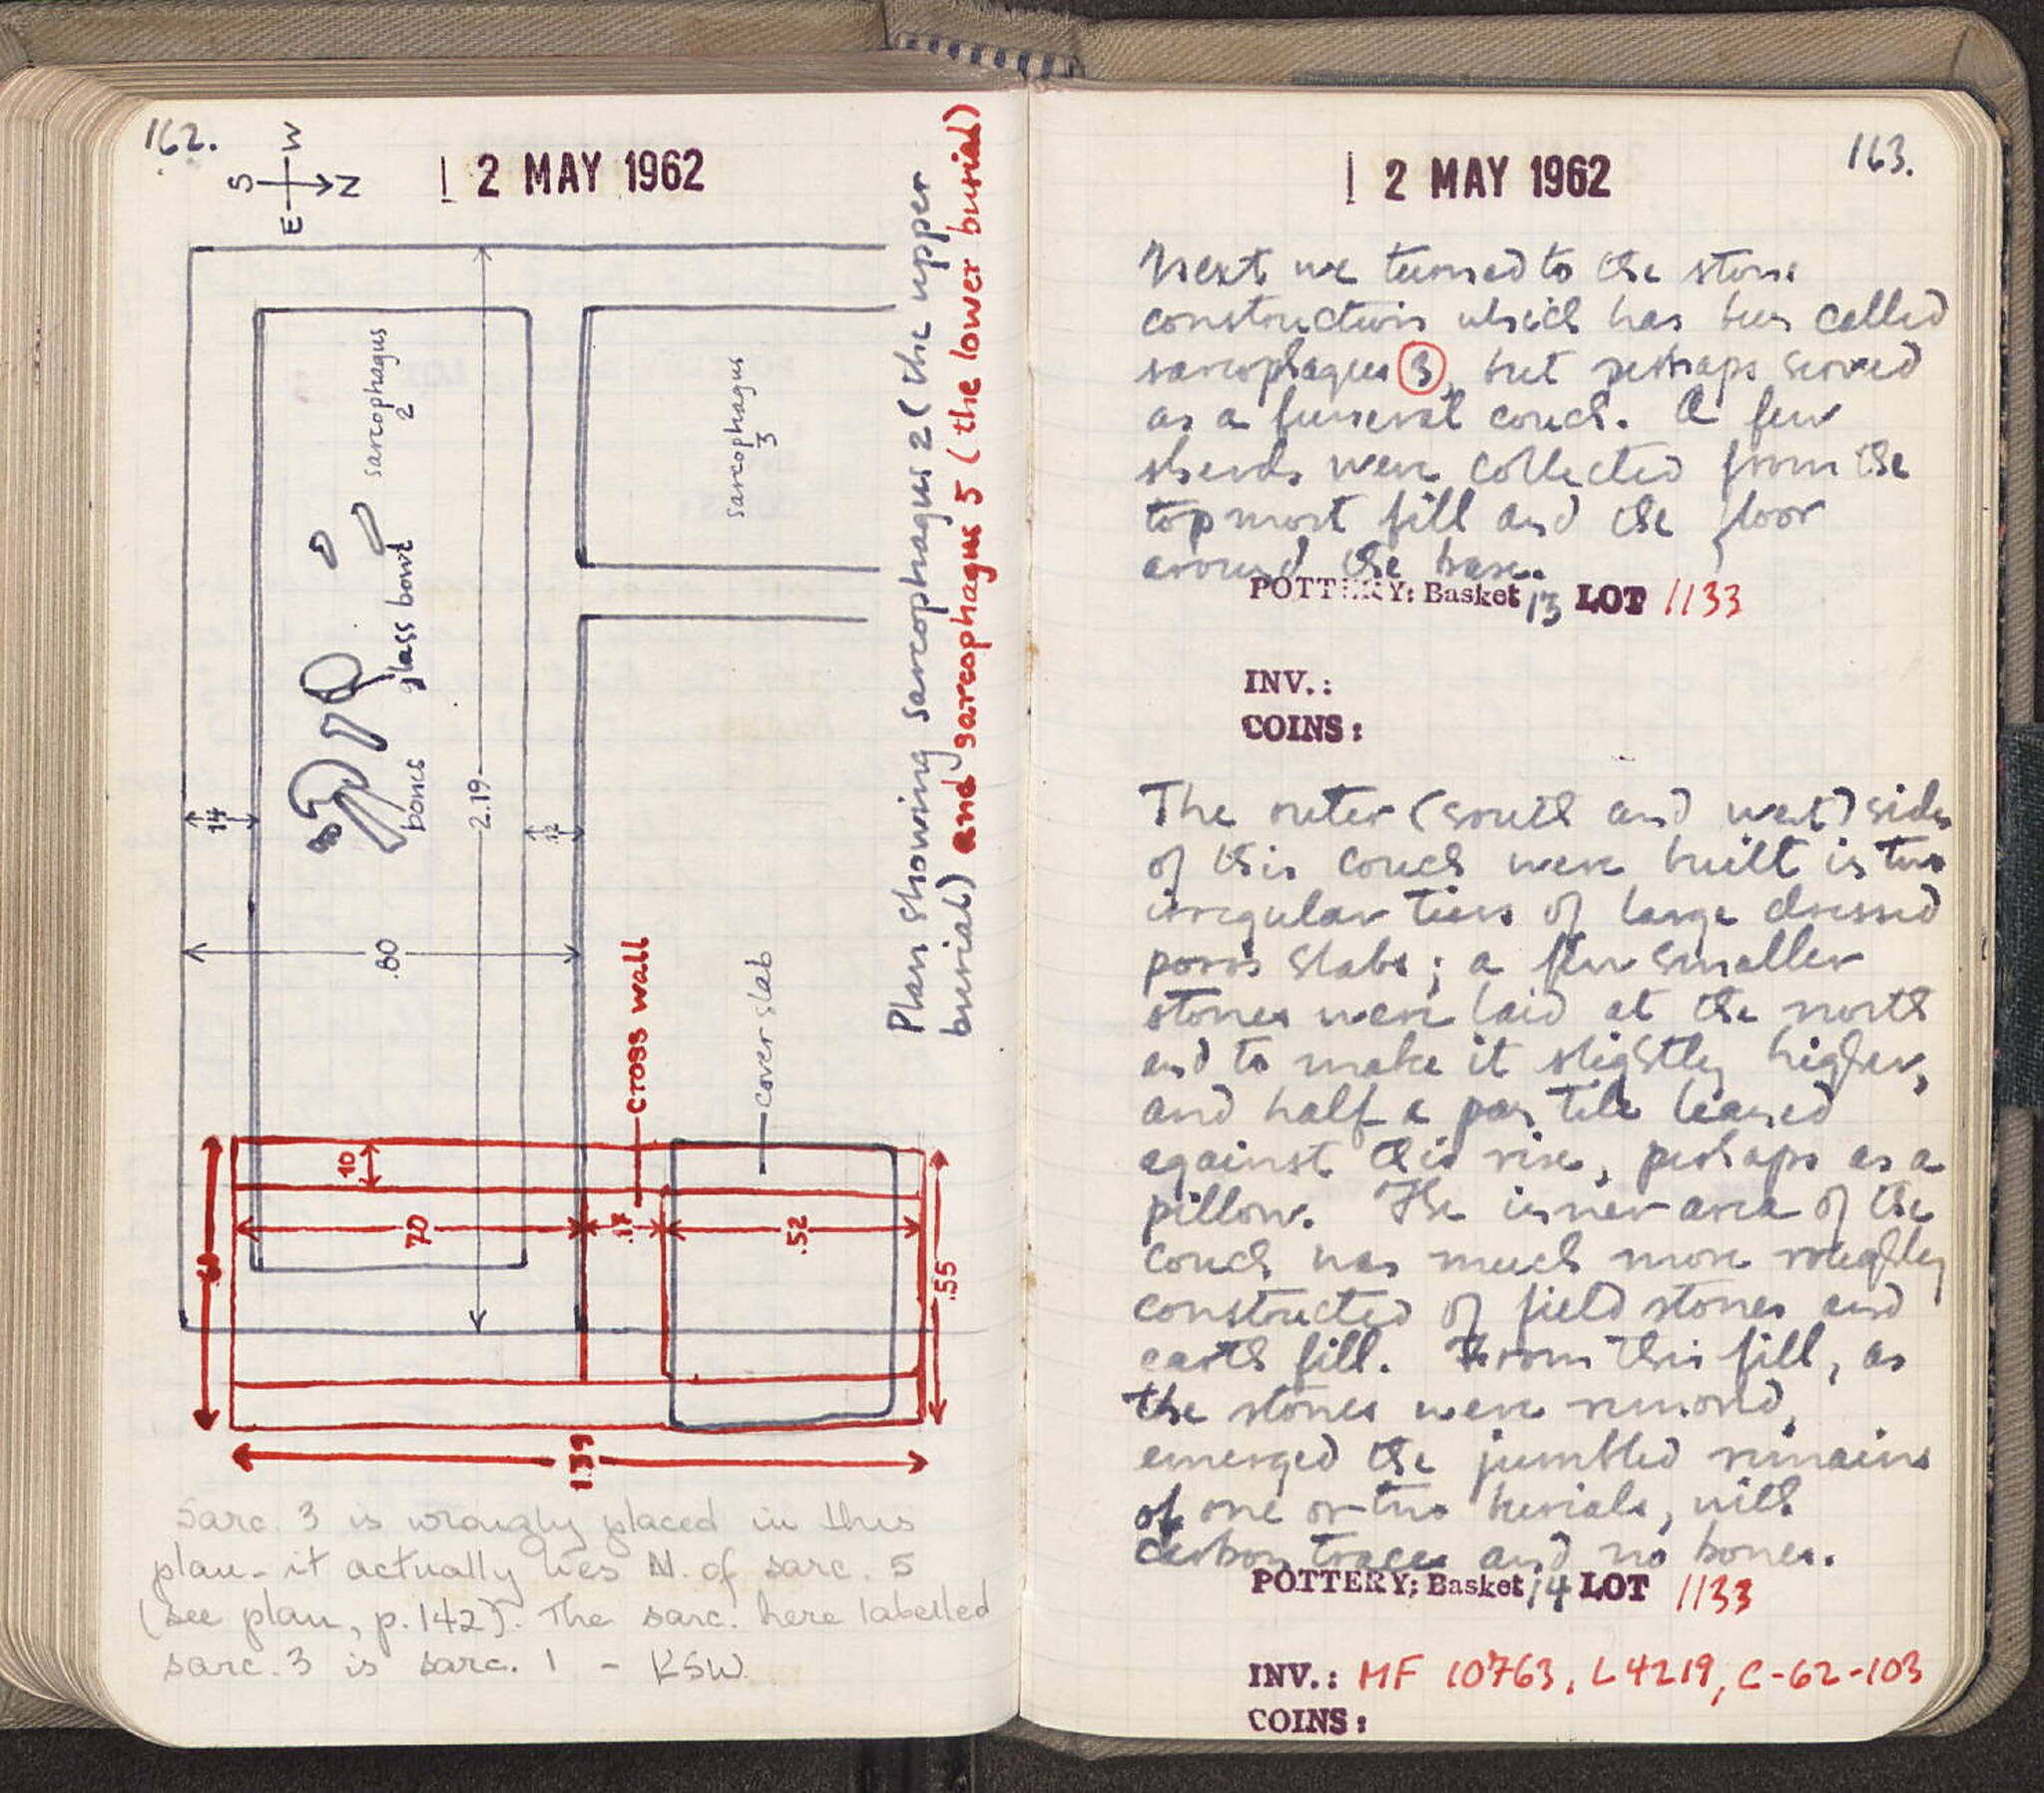 162.
S
W
N
E
12 MAY 1962
sarcophagus
2
glass bowl
bones
14
2.19
12
.80
sarcophagus
3
Plan showing sarcophagus 2 (the upper
burial) and sarcophagus 5 (the lower burial)
cross wall
cover slab
10
70
.17
.52
.55
1.39
Sarc. 3 is wrongly placed in this
plan - it actually lies N. of sarc. 5
(see plan, p. 142). The sarc. here labelled
sarc. 3 is sarc. 1 - KSW
163.
12 MAY 1962
Next we turned to the stone
construction which has been called
sarcophagus 3, but perhaps served
as a funeral couch. A few
sherds were collected from the
topmost fill and the floor
around the base.
POTTERY: Basket 13 LOT 1133
INV.:
COINS:
The outer (south and west) sides
of this couch were built in two
irregular tiers of large dressed
poros slabs; a few smaller
stones were laid at the north
end to make it slightly higher,
and half a pan tile leaned
against this rise, perhaps as a
pillow. The inner area of the
couch was much more roughly
constructed of field stones and
earth fill. From this fill, as
the stones were removed,
emerged the jumbled remains
of one or two burials, with
carbon traces and no bones.
POTTERY: Basket 14 LOT 1133
INV.: MF 10763, L4219, C-62-103
COINS: